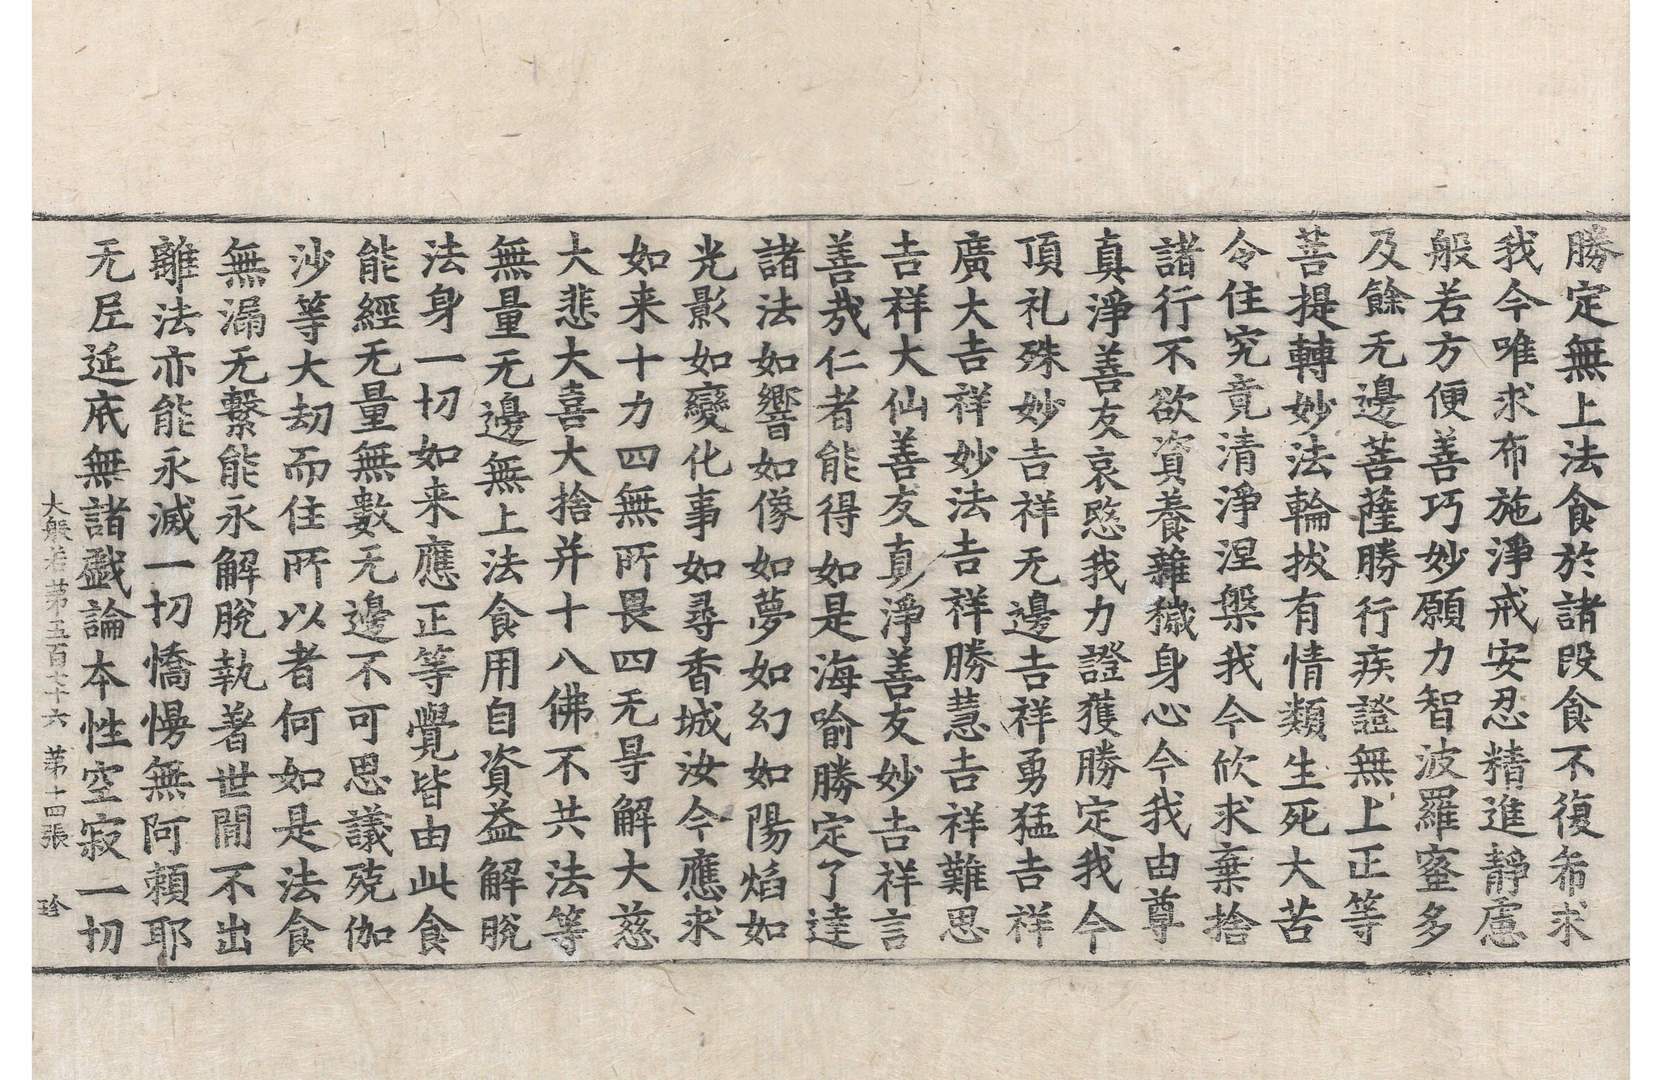 勝定無上法食於諸段食不復希求
我今唯求布施淨戒安忍精進靜慮
般若方便善巧妙願力智波羅蜜多
及餘无邊菩薩勝行疾證無上正等
菩提轉妙法輪拔有情類生死大苦
令住究竟清淨涅槃我今欣求棄捨
諸行不欲資養雜穢身心今我由尊
真淨善友哀愍我力證獲勝定我今
頂礼殊妙吉祥无邊吉祥勇猛吉祥
廣大吉祥妙法吉祥勝慧吉祥難思
吉祥大仙善友真淨善友妙吉祥言
善哉仁者能得如是海喻勝定了達
諸法如響如像如夢如幻如陽焰如
光影如變化事如尋香城汝今應求
如来十力四無所畏四无㝵解大慈
大悲大喜大捨并十八佛不共法等
無量无邊無上法食用自資益解脫
法身一切如来應正等覺皆由此食
能經无量無數无邊不可思議殑伽
沙等大劫而住所以者何如是法食
無漏无繫能永解脫執著世間不出
離法亦能永滅一切憍慢無阿賴耶
无尼延底無諸戲論本性空寂一切
大般若第五百七十六 第十四張 珍